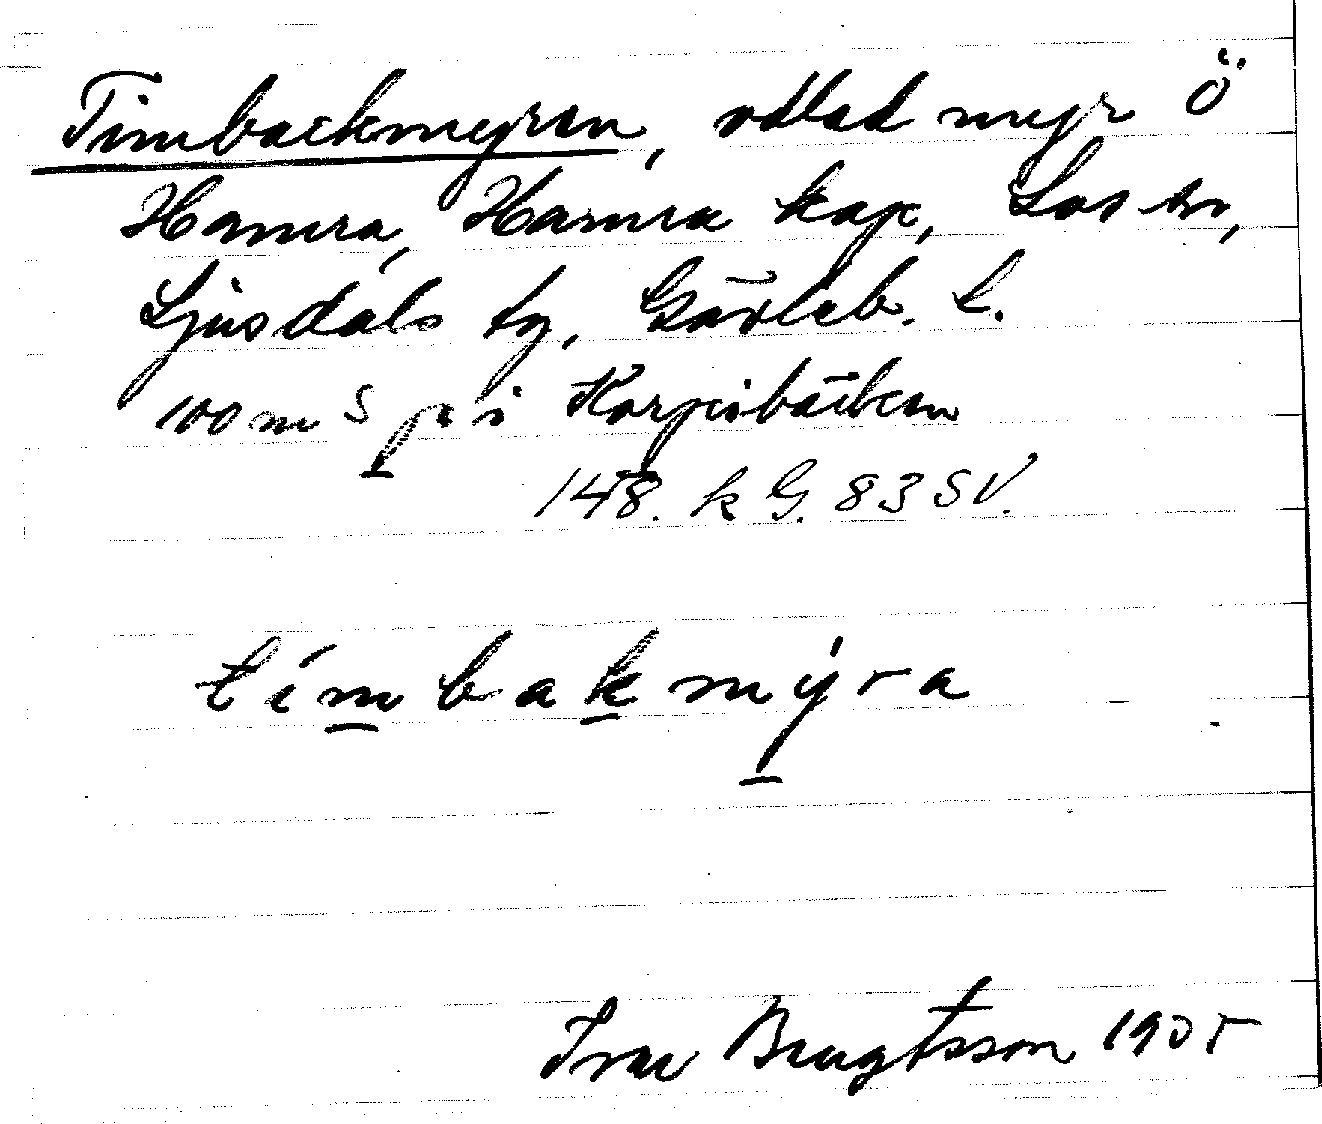 Timbackmyren, odlad myr Ö
Hamra, Hamra kap, Los sn,
Ljusdals tg, Gävleb. L.
100 m S p i
148. k G. 83 SV.
timbakmýra
Ivar Bengtsson 1905